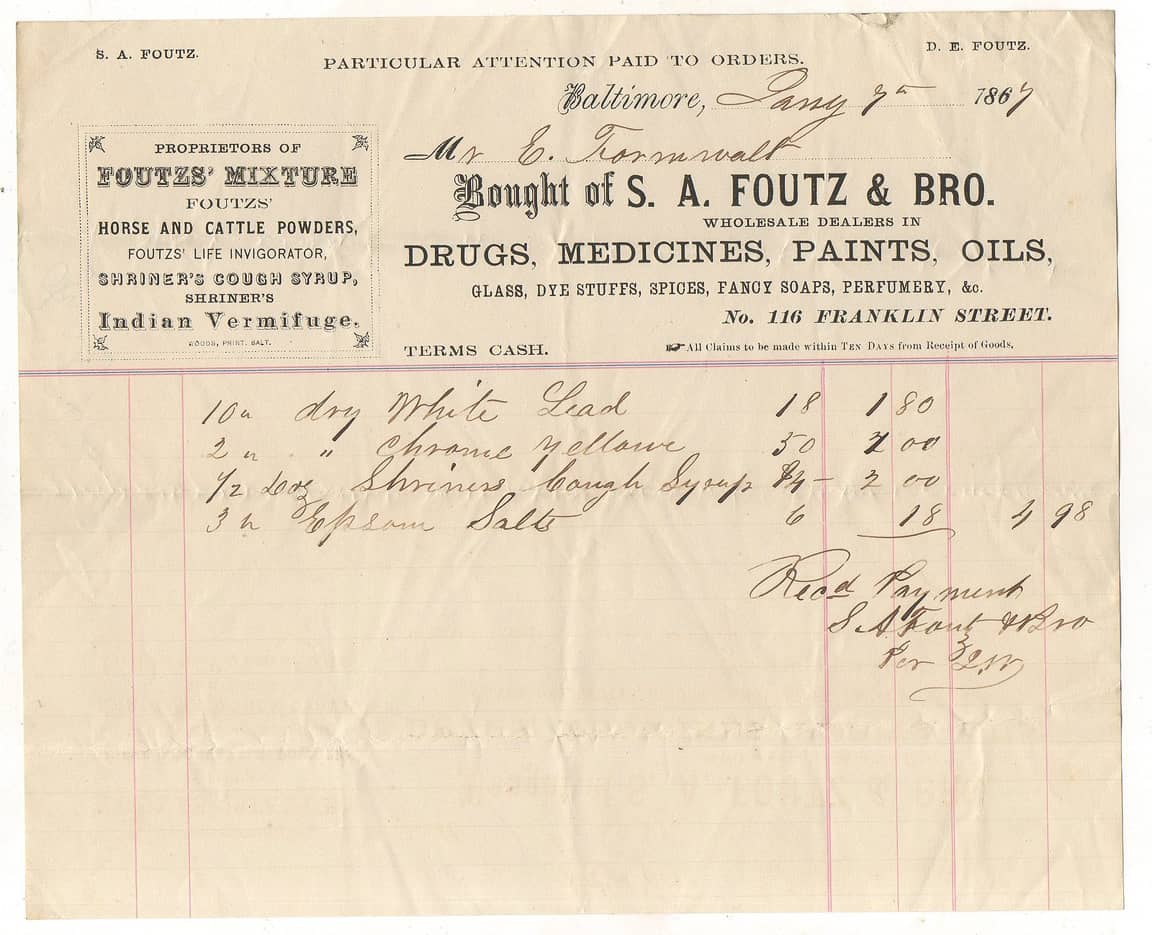 S. A. FOUTZ.
D. E. FOUTZ.
PARTICULAR ATTENTION PAID TO ORDERS.
Baltimore, Jany 7th 1867
Mr E. Formwalt
Bought of S. A. FOUTZ & BRO.
WHOLESALE DEALERS IN
DRUGS, MEDICINES, PAINTS, OILS,
GLASS, DYE STUFFS, SPICES, FANCY SOAPS, PERFUMERY, &c.
No. 116 FRANKLIN STREET.
TERMS CASH.
All Claims to be made within TEN DAYS from Receipt of Goods.
PROPRIETORS OF
FOUTZS' MIXTURE
FOUTZS'
HORSE AND CATTLE POWDERS,
FOUTZS' LIFE INVIGORATOR,
SHRINER'S COUGH SYRUP,
SHRINER'S
Indian Vermifuge.
WOODS, PRINT. BALT.
10 " dry White Lead 18 1 80
2 " " Chrome Yellowe 50 1 00
1/2 Doz Shriners Cough Syrup $4 - 2 00
3 " Epsom Salts 6 18 4 98
Recd Payment
S A Foutz & Bro
Per